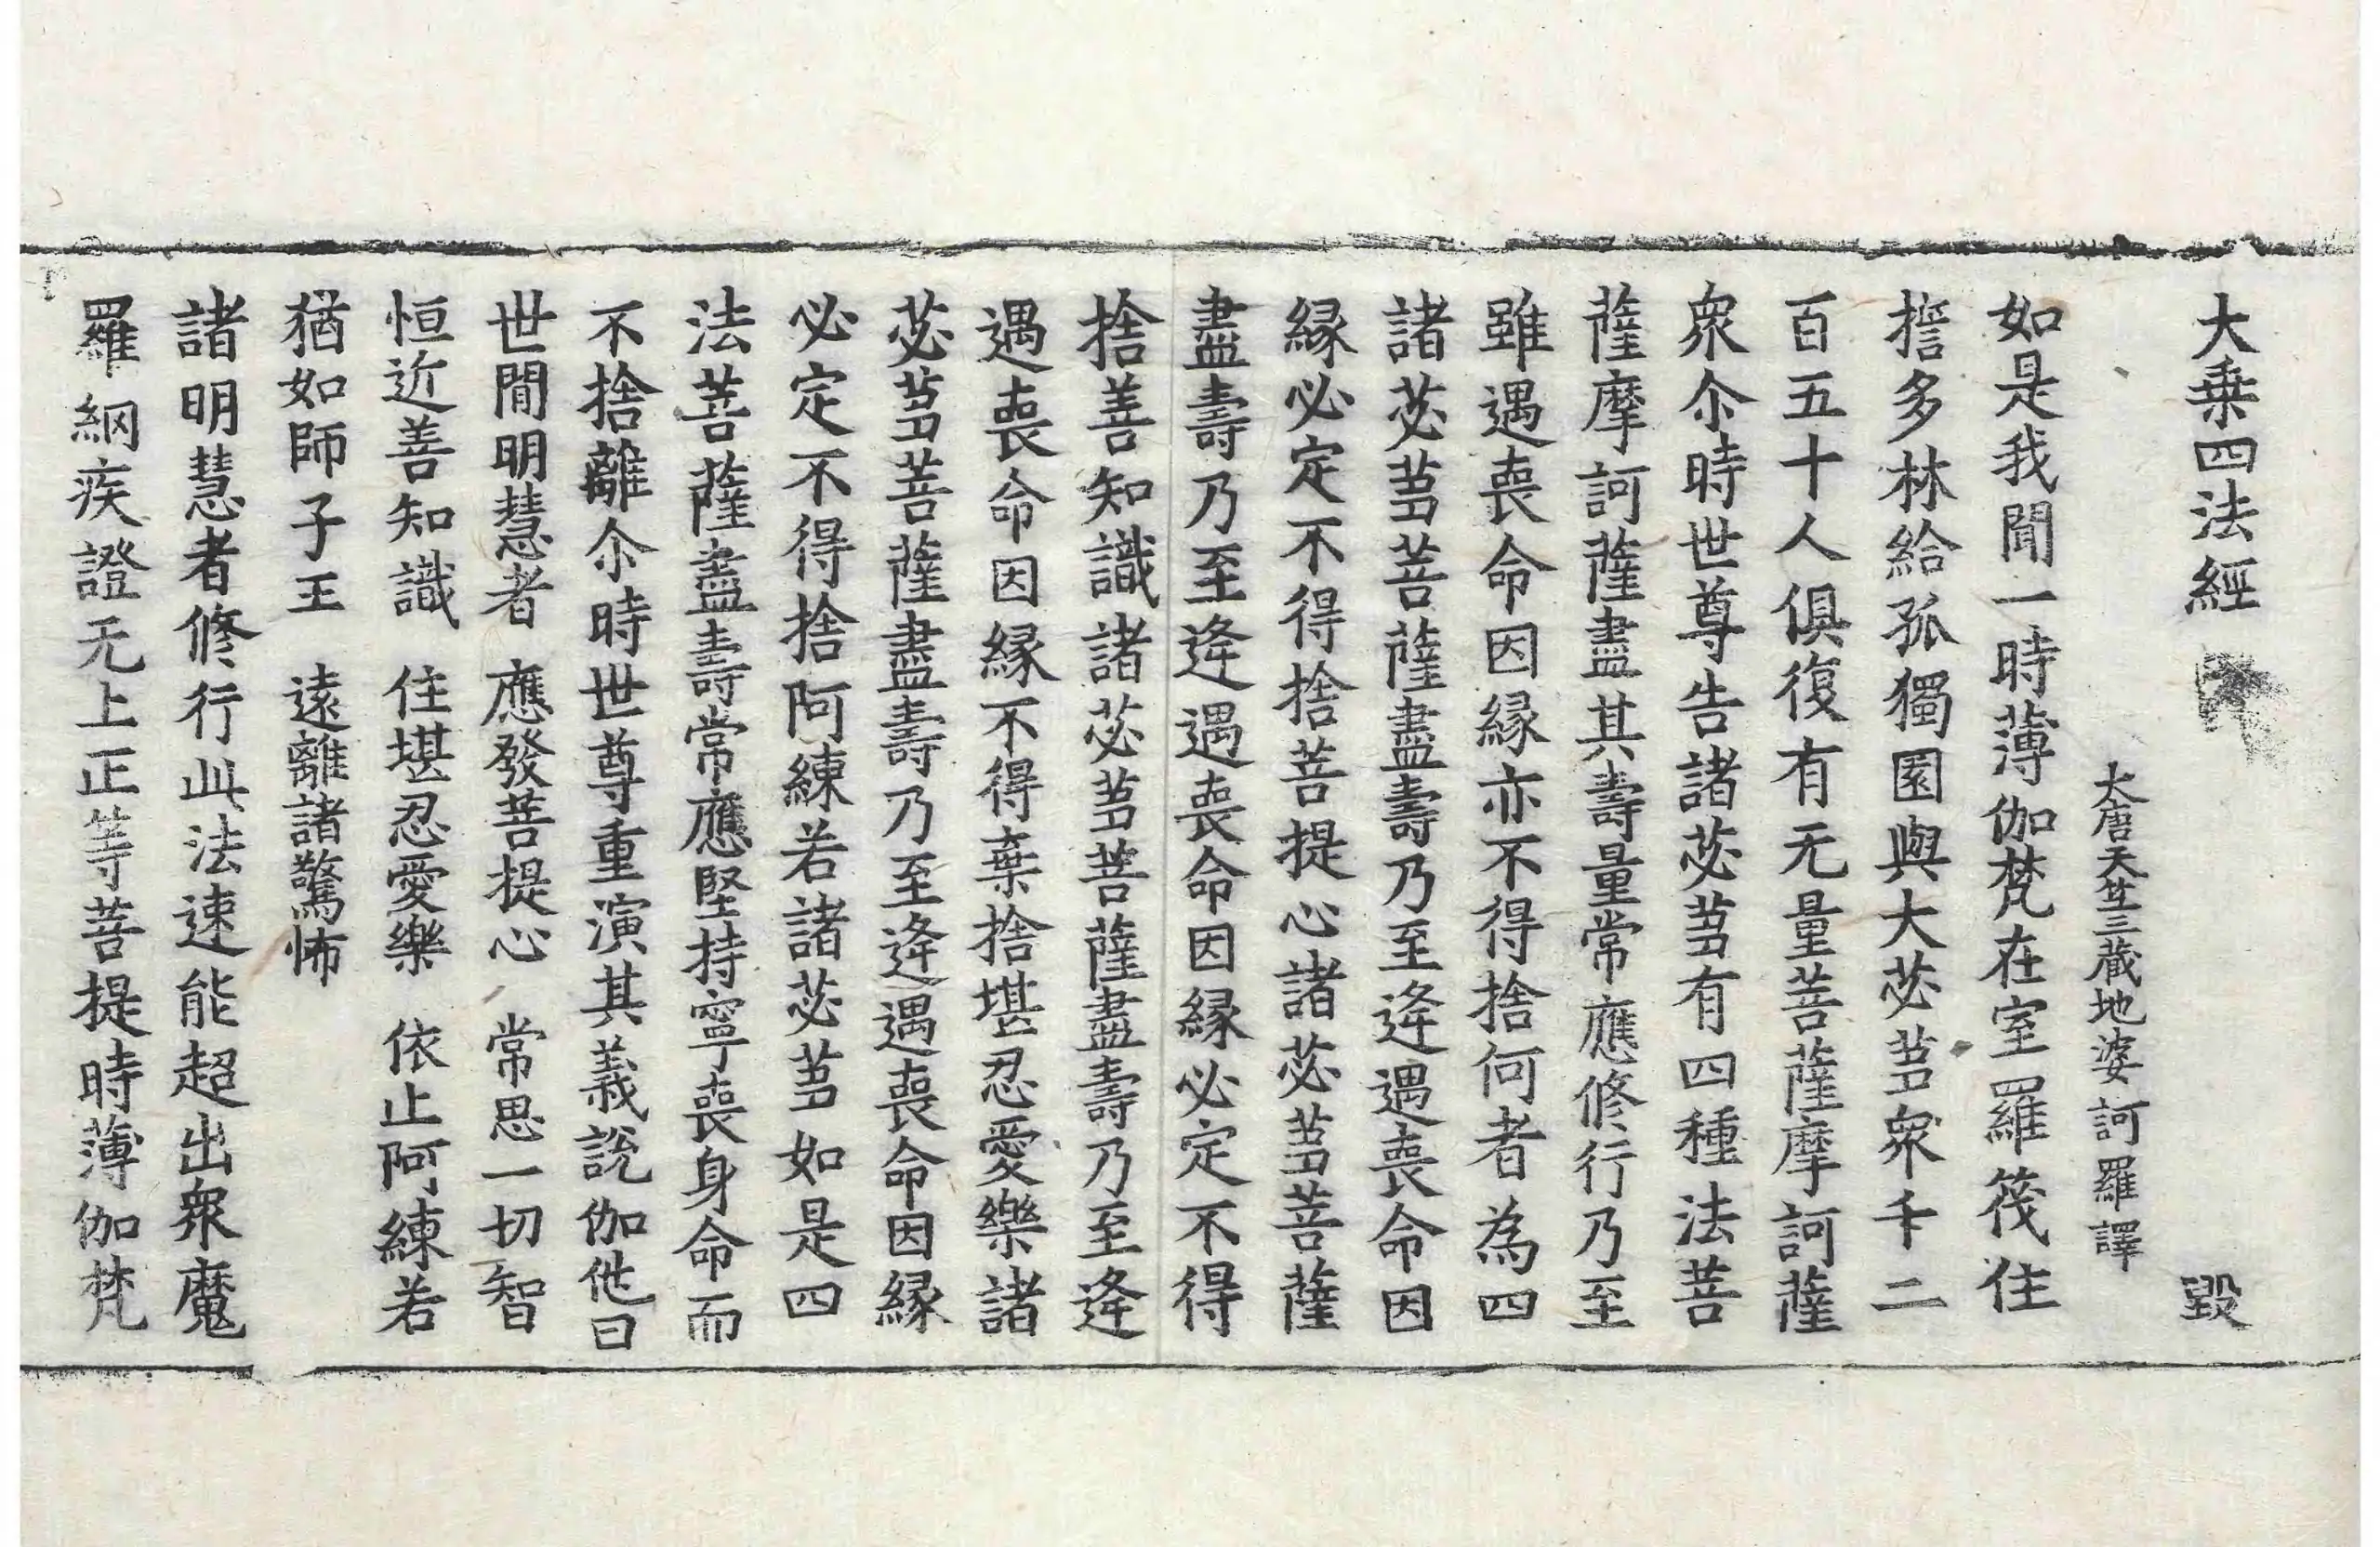 大乗四法經 毀
大唐天竺三藏地婆訶羅譯
如是我聞一時薄伽梵在室羅筏住
擔多林給孤獨園與大苾芻衆千二
百五十人俱復有无量菩薩摩訶薩
衆尒時世尊告諸苾芻有四種法菩
薩摩訶薩盡其壽量常應修行乃至
雖遇喪命因縁亦不得捨何者為四
諸苾芻菩薩盡壽乃至逄遇喪命因
縁必定不得捨菩提心諸苾芻菩薩
盡壽乃至逄遇喪命因縁必定不得
捨善知識諸苾芻菩薩盡壽乃至逄
遇喪命因縁不得棄捨堪忍愛樂諸
苾芻菩薩盡壽乃至逄遇喪命因縁
必定不得捨阿練若諸苾芻如是四
法菩薩盡壽常應堅持寧喪身命而
不捨離尒時世尊重演其義說伽他曰
世間明慧者 應發菩提心 常思一切智
恒近善知識 住堪忍愛樂 依止阿練若
猶如師子王 遠離諸驚怖
諸明慧者修行此法速能超出衆魔
羅網疾證无上正等菩提時薄伽梵